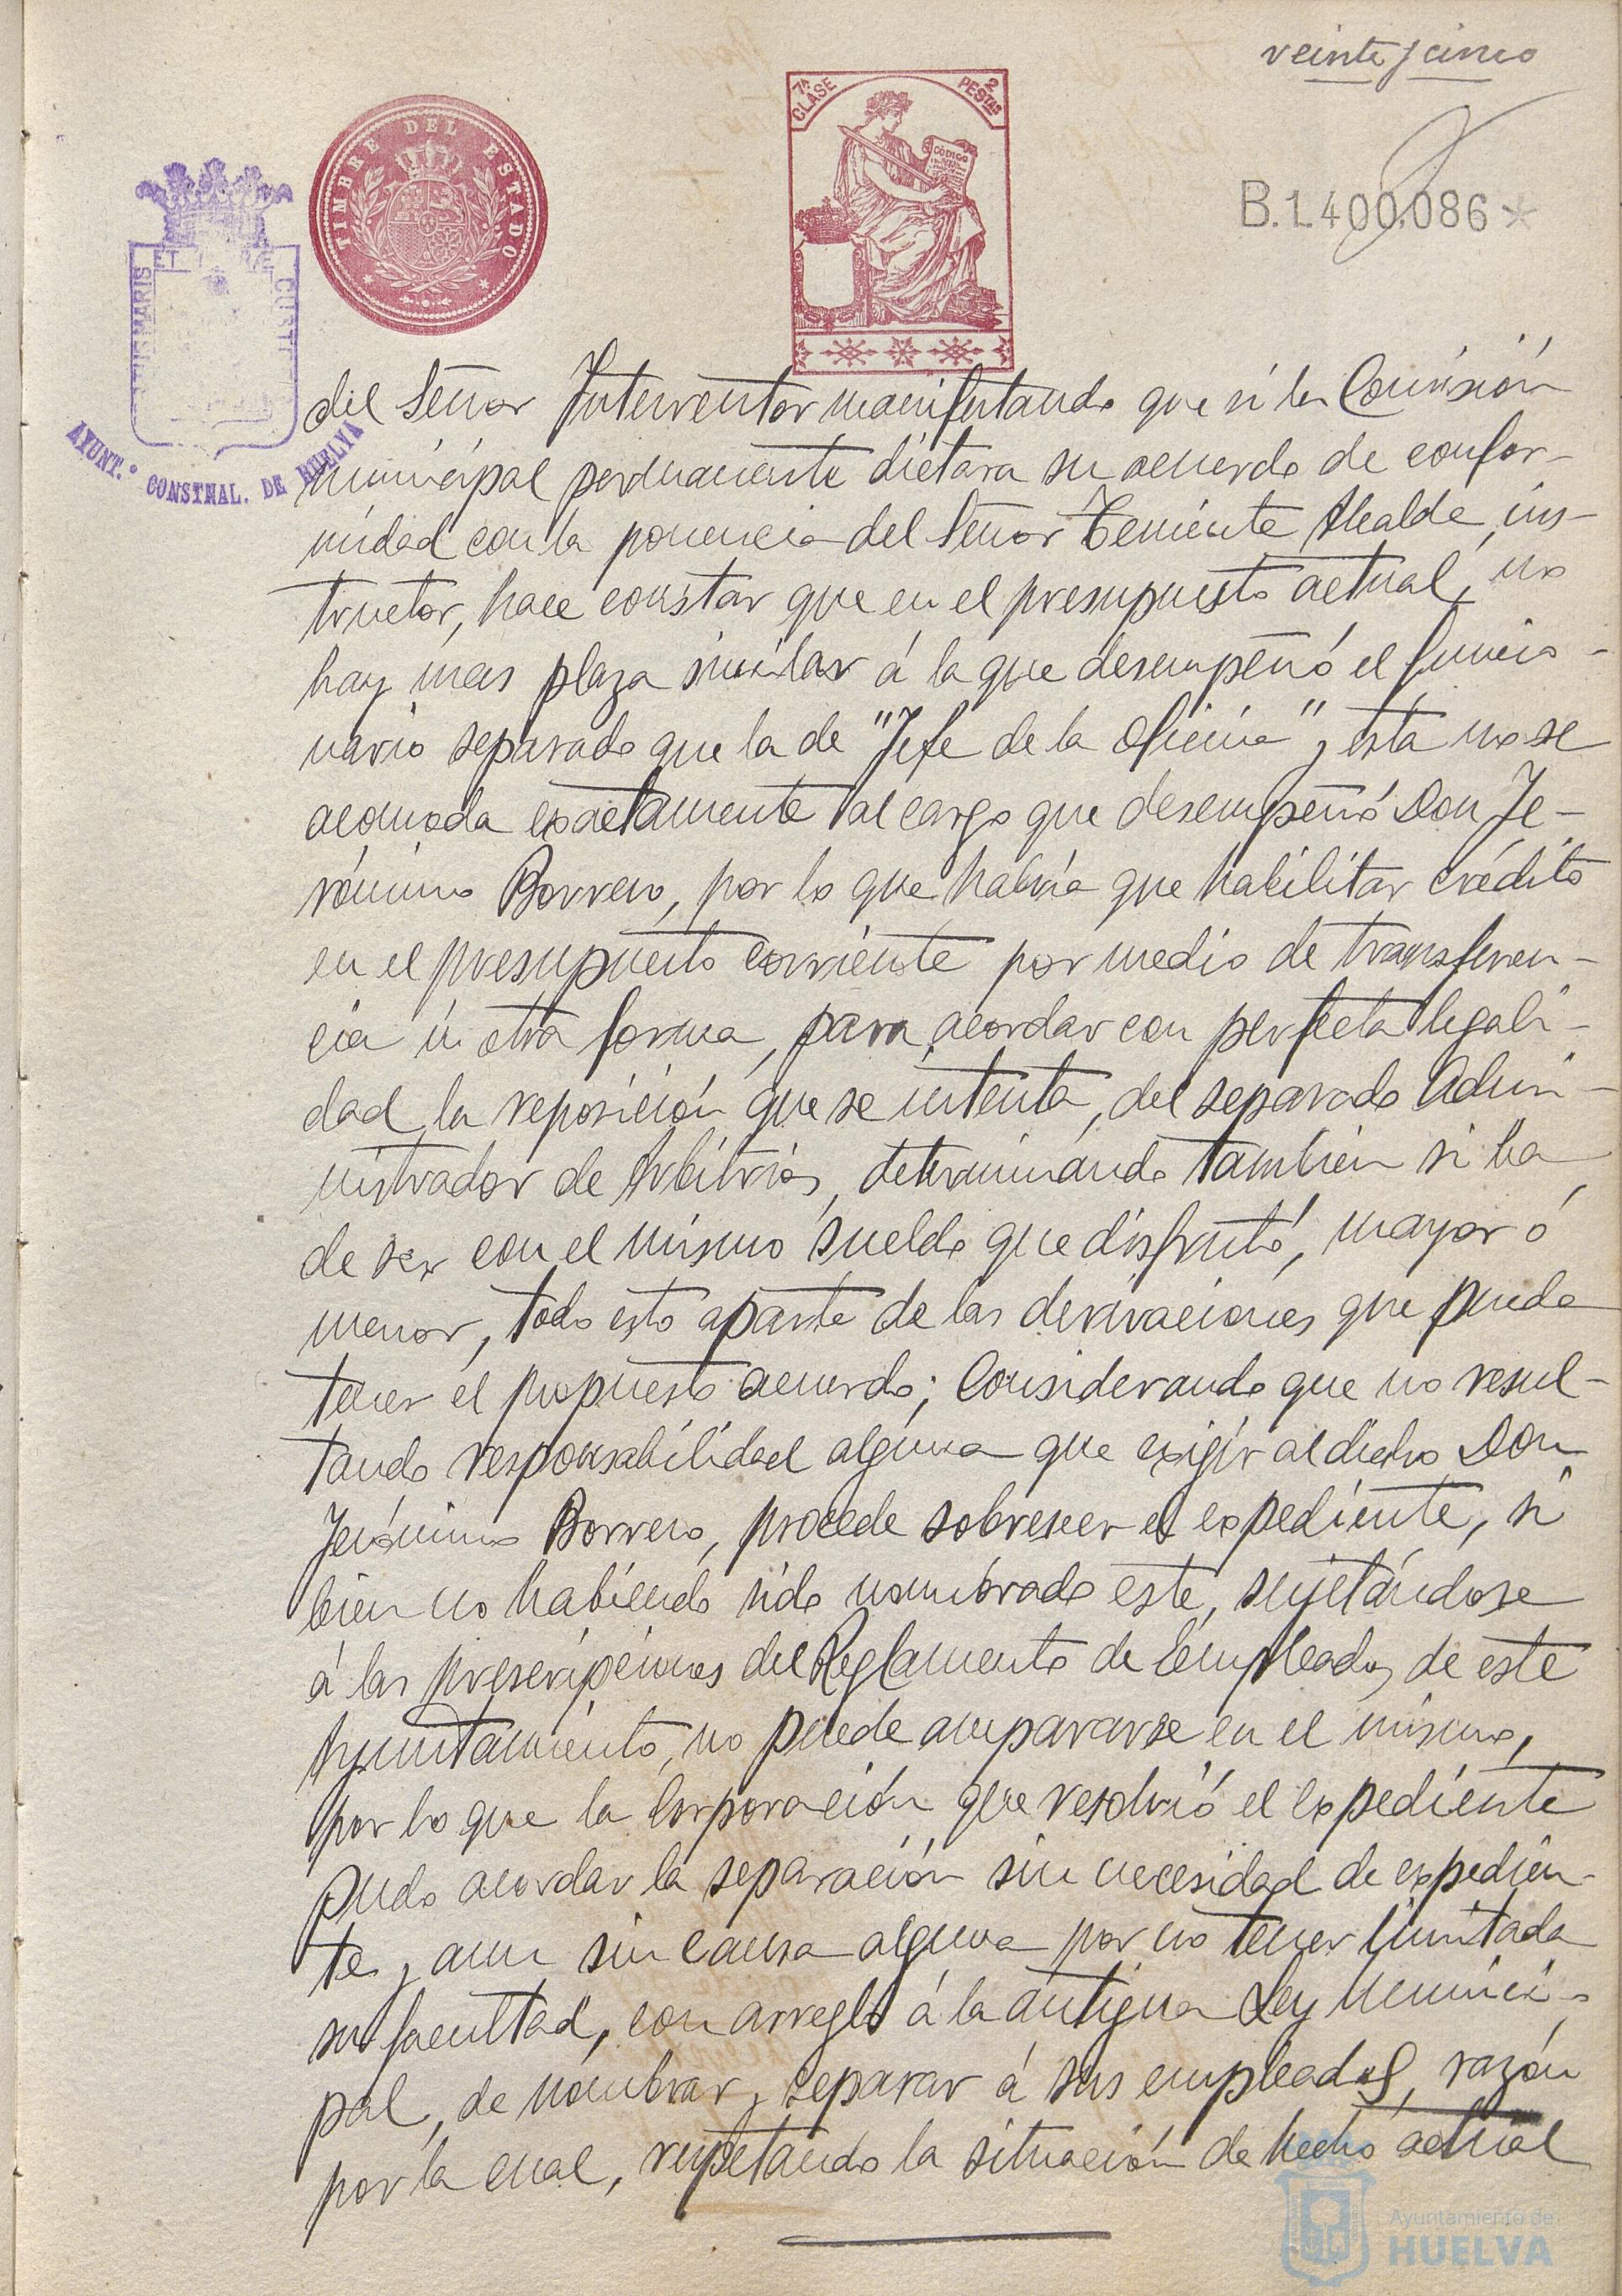 veinte y cinco
TIMBRE DEL ESTADO
7ª CLASE
2 PESTAS
CODIGO
B.1.400.086*
MARIS ET CUST
AYUNT.º CONSTNAL. DE HUELVA
del Señor Interventor manifestando que si la Comisión
municipal permanente dictara su acuerdo de confor-
midad con la ponencia del Señor Teniente Alcalde, ins-
tructor, hace constar que en el presupuesto actual, no
hay mas plaza similar á la que desempeñó el funcio-
nario separado que la de "Jefe de la oficina" y esta no se
acomoda exactamente al cargo que desempeñó Don Je-
rónimo Borrero, por lo que habría que habilitar crédito
en el presupuesto corriente por medio de transferen-
cia ú otra forma, para acordar con perfecta legali-
dad la reposición que se intenta, del separado Admi-
nistrador de Arbitrios, determinando tambien si ha
de ser con el mismo sueldo que disfrutó, mayor ó
menor, todo esto aparte de las derivaciones que pueda
tener el propuesto acuerdo; Considerando que no resul-
tando responsabilidad alguna que exigir al dicho Don
Jerónimo Borrero, procede sobreseer el expediente, si
bien no habiendo sido nombrado este, sujetándose
á las prescripciones del Reglamento de Empleados de este
Ayuntamiento, no puede ampararse en el mismo,
por lo que la Corporación que resolvió el expediente
pudo acordar la separación sin necesidad de expedien-
te y aun sin causa alguna por no tener limitada
su facultad, con arreglo á la antigua Ley Munici-
pal, de nombrar y separar á sus empleados, razón
por la cual, respetando la situación de hecho actual
Ayuntamiento de
HUELVA